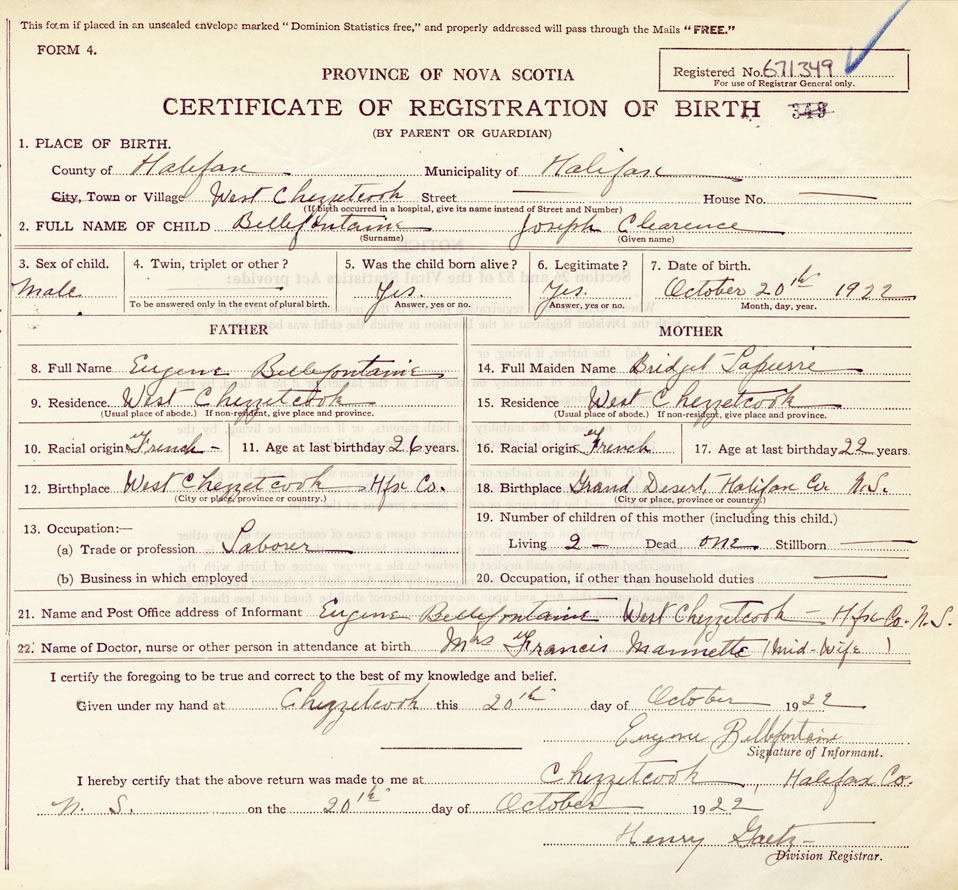 This form if placed in an unsealed envelope marked "Dominion Statistics free," and properly addressed will pass through the Mails "FREE."
FORM 4.
Registered No. 671349
For use of Registrar General only.
PROVINCE OF NOVA SCOTIA
CERTIFICATE OF REGISTRATION OF BIRTH 349
(BY PARENT OR GUARDIAN)
1. PLACE OF BIRTH.
County of Halifax Municipality of Halifax
City, Town or Village West Chezzetcook Street House No.
(If birth occurred in a hospital, give its name instead of Street and Number)
2. FULL NAME OF CHILD Bellefontaine Joseph Clearence
(Surname) (Given name)
3. Sex of child. 4. Twin, triplet or other? 5. Was the child born alive? 6. Legitimate? 7. Date of birth.
Male Yes. Yes. October 20th 1922
To be answered only in the event of plural birth. Answer, yes or no. Answer, yes or no. Month, day, year.
FATHER MOTHER
8. Full Name Eugene Bellefontaine 14. Full Maiden Name Bridget Lapierre
9. Residence West Chezzetcook 15. Residence West Chezzetcook
(Usual place of abode.) If non-resident, give place and province. (Usual place of abode.) If non-resident, give place and province.
10. Racial origin French 11. Age at last birthday 26 years. 16. Racial origin French 17. Age at last birthday 22 years.
12. Birthplace West Chezzetcook Hfx Co. 18. Birthplace Grand Desert, Halifax Co N.S.
(City or place, province or country.) (City or place, province or country.)
13. Occupation:— 19. Number of children of this mother (including this child.)
(a) Trade or profession Laborer Living 2 Dead one Stillborn
(b) Business in which employed 20. Occupation, if other than household duties
21. Name and Post Office address of Informant Eugene Bellefontaine West Chezzetcook — Hfx Co. N.S.
22. Name of Doctor, nurse or other person in attendance at birth Mrs Francis Mannette (Mid-Wife)
I certify the foregoing to be true and correct to the best of my knowledge and belief.
Given under my hand at Chezzetcook this 20th day of October 1922
Eugene Bellefontaine
Signature of Informant.
I hereby certify that the above return was made to me at Chezzetcook, Halifax Co.
N. S. on the 20th day of October 1922
Henry Gaetz
Division Registrar.